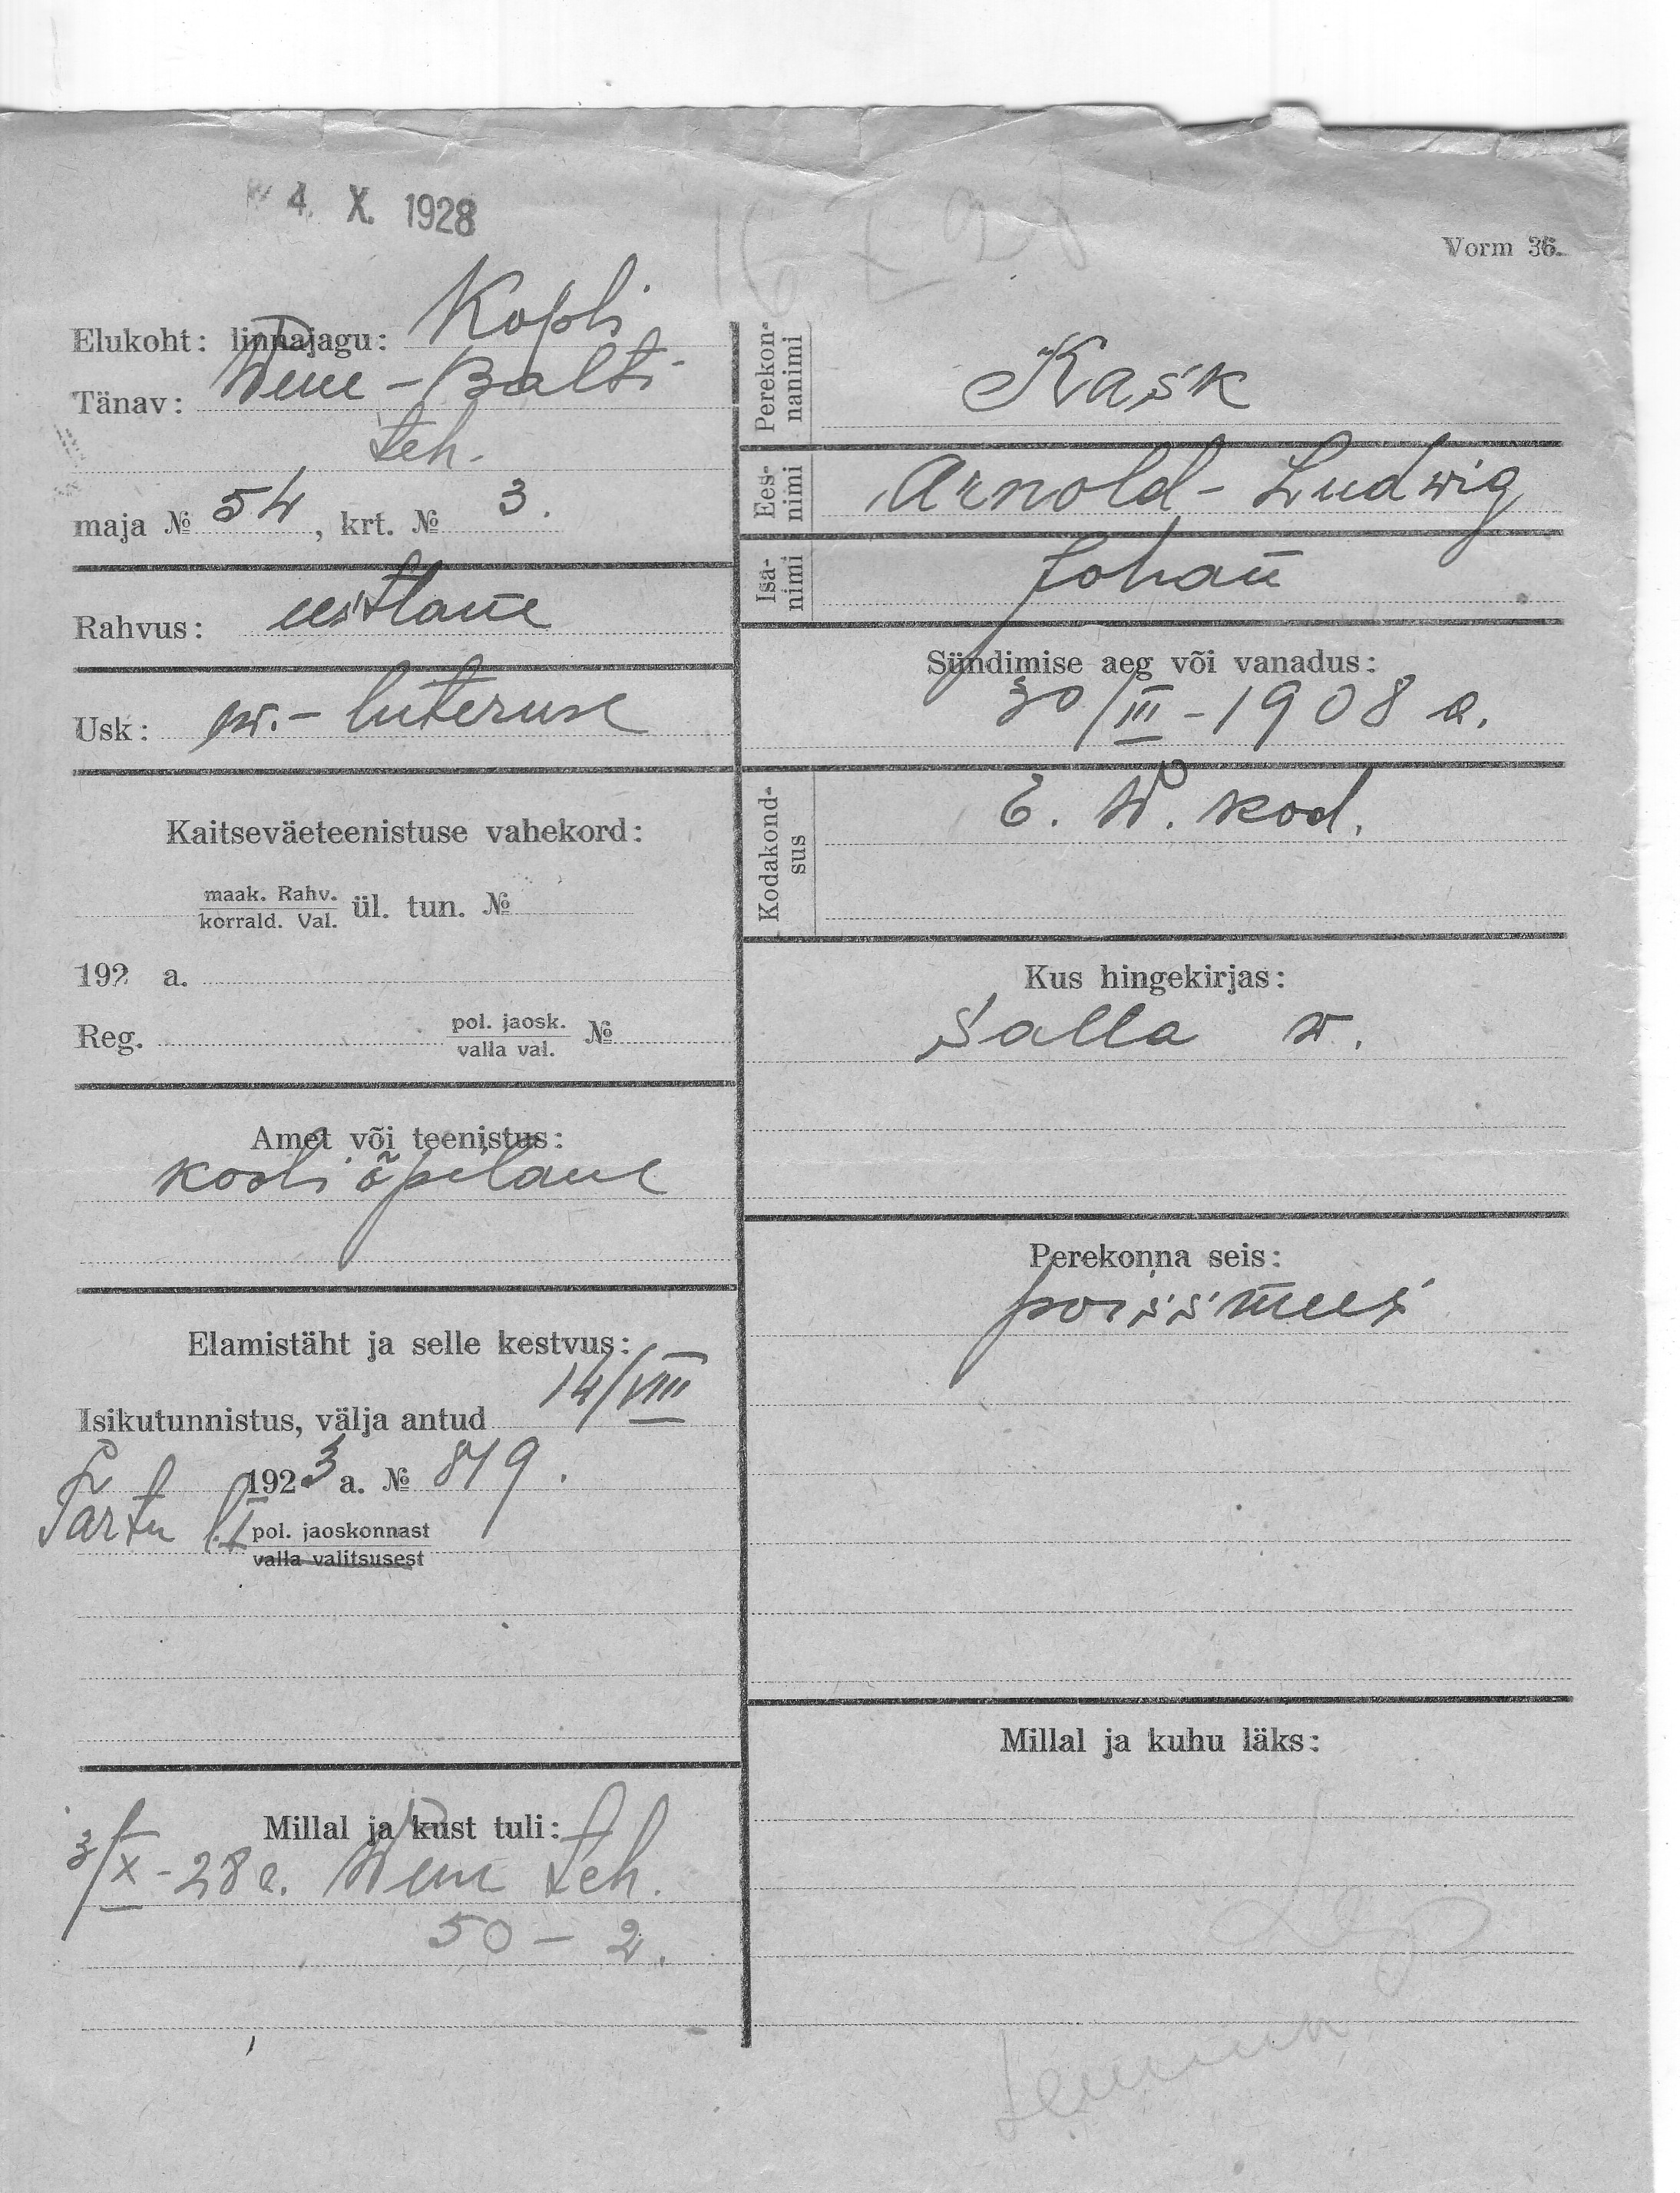 4. X. 1928
16 X 928
Vorm 36.
Elukoht: linnajagu: Kopli
Tänav: Wene-Balti
teh.
maja № 54, krt. № 3.
Rahvus: eestlane
Usk: ew.-luteruse
Kaitseväeteenistuse vahekord:
maak. Rahv.
korrald. Val. ül. tun. №
192 a.
Reg. pol. jaosk.
valla val. №
Amet või teenistus:
kooliõpilane
Elamistäht ja selle kestvus:
Isikutunnistus, välja antud 14/VIII
1923 a. № 879.
Tartu l. I pol. jaoskonnast
valla valitsusest
Millal ja kust tuli:
3/X-28 a. Wene teh.
50-2.
Perekonnanimi Kask
Eesnimi Arnold-Ludwig
Isanimi Johan
Sündimise aeg või vanadus:
30/III-1908 a.
Kodakondsus E. W. kod.
Kus hingekirjas:
Salla w.
Perekonna seis:
poissmees
Millal ja kuhu läks: